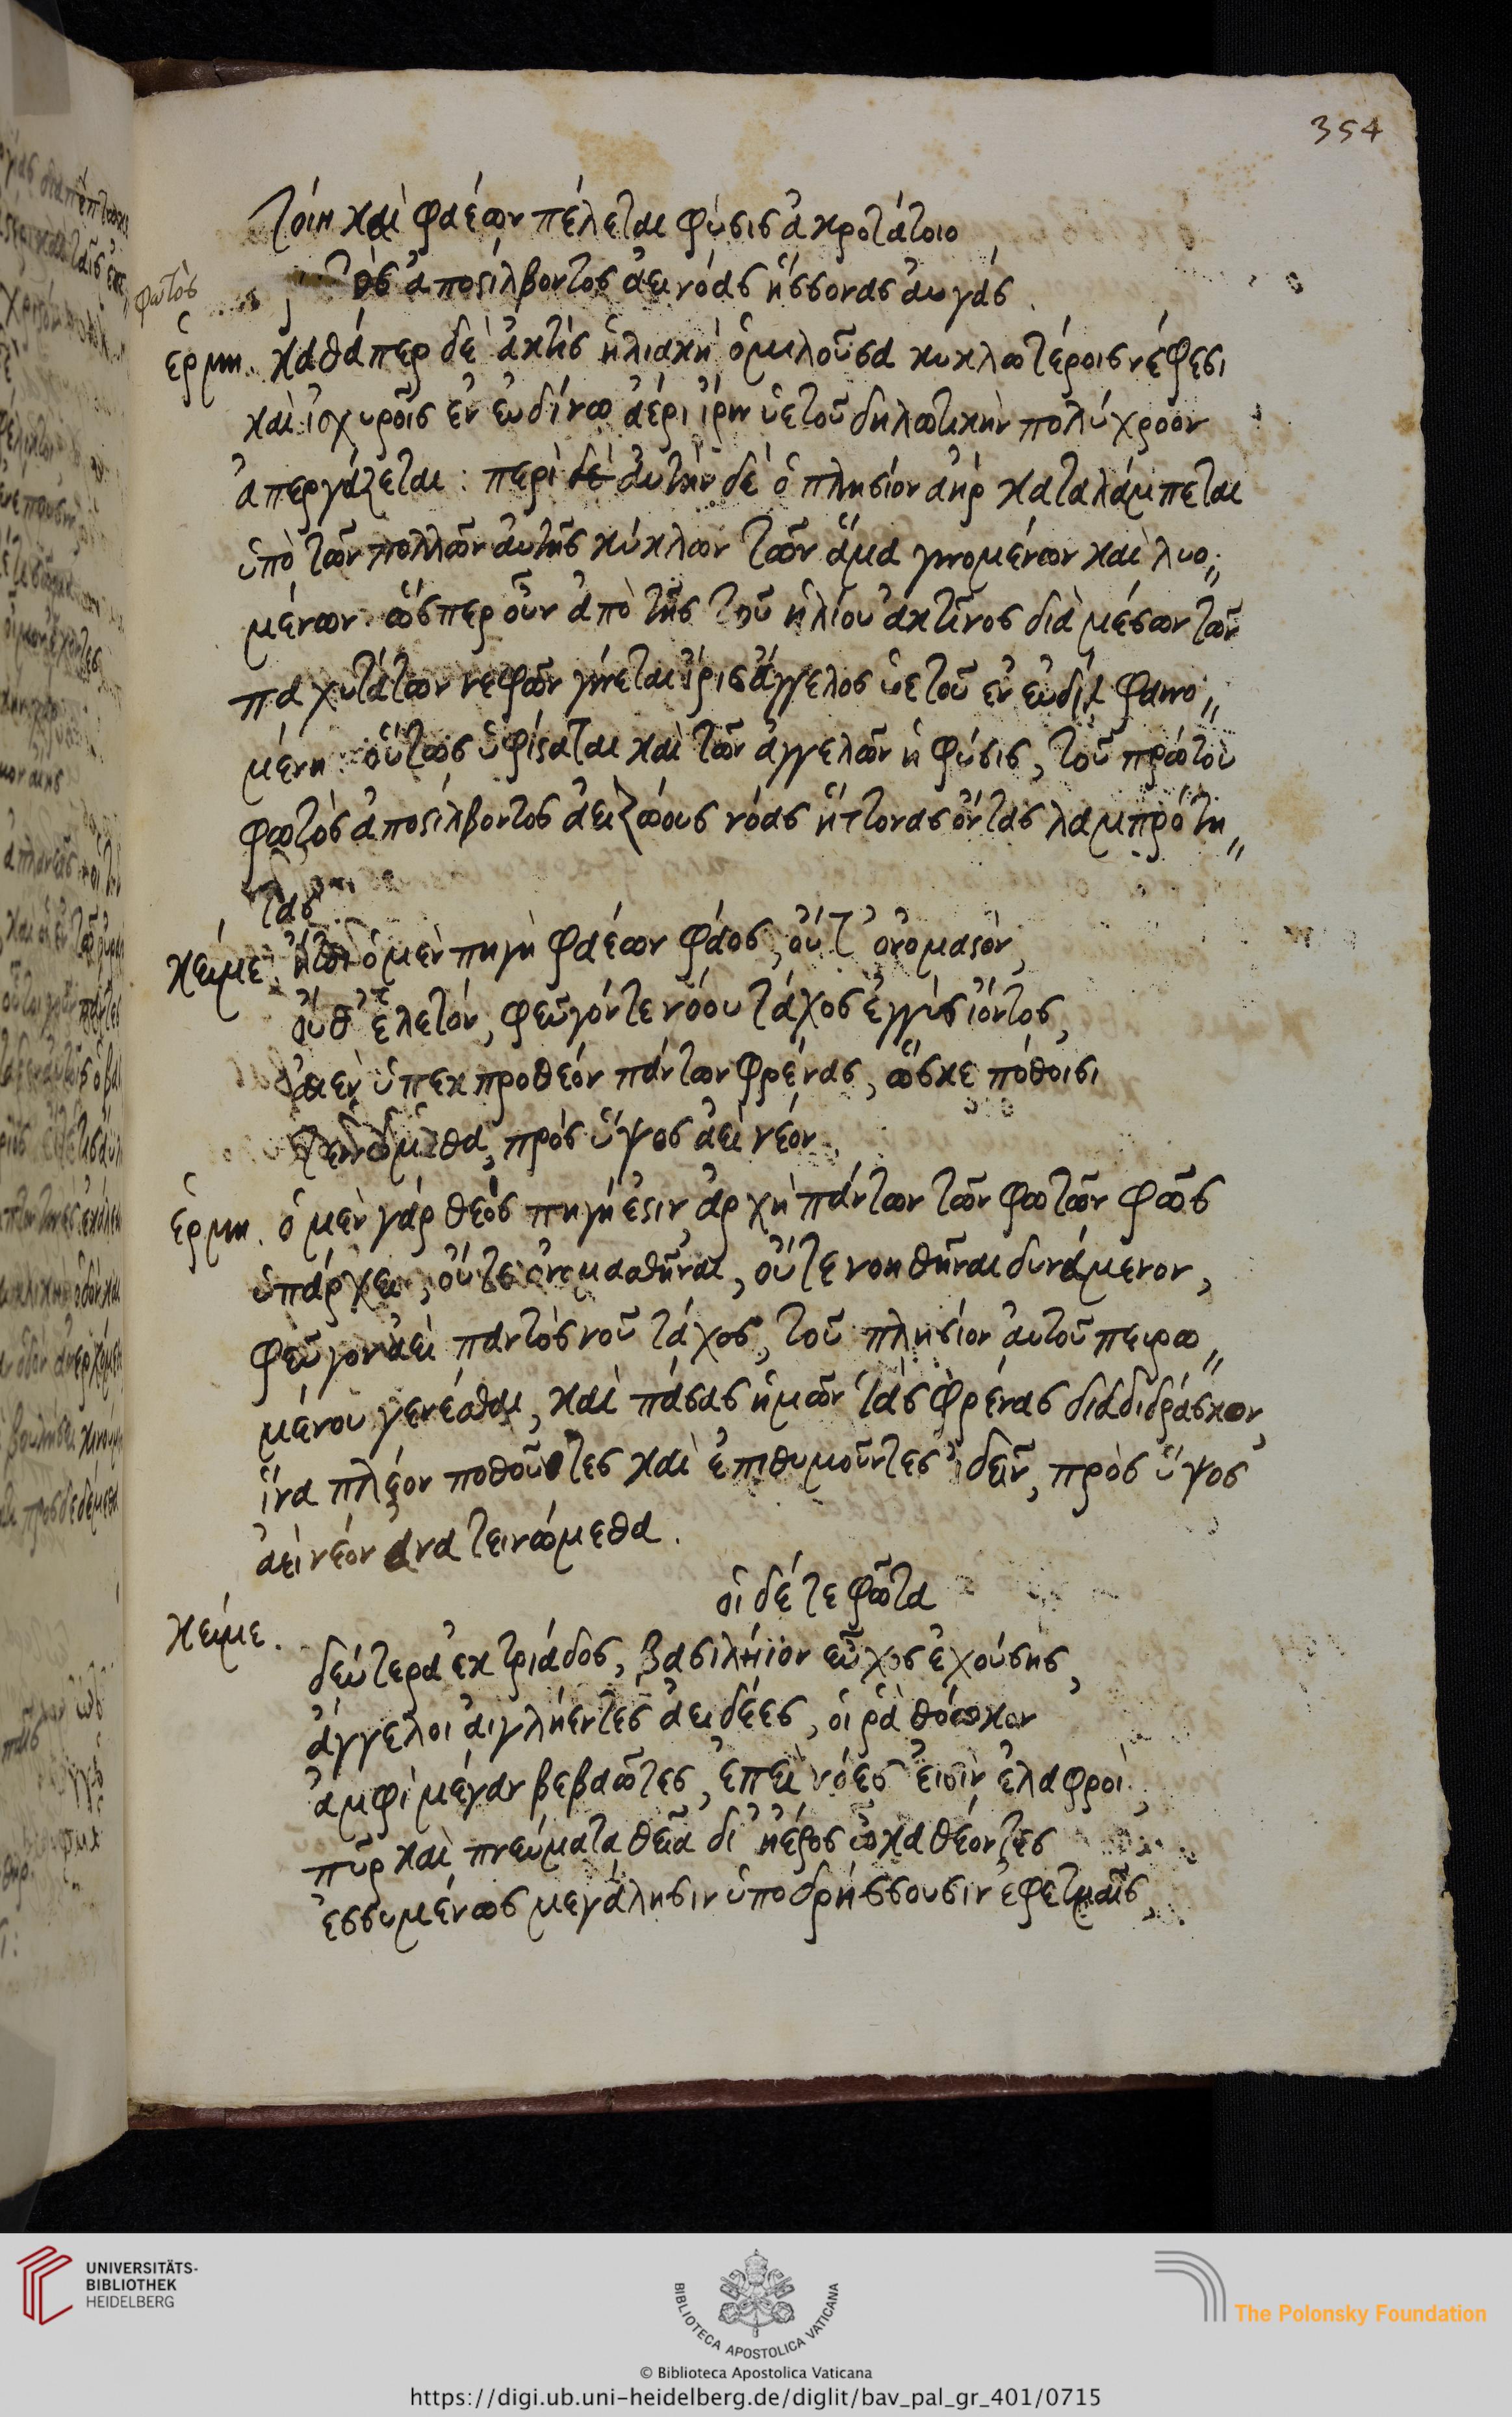 354
τοίη καὶ φαέων πέλεται φύσις ἀκροτάτοιο
φωτὸς ἀποστίλβοντος ἀεὶ νόας ἥσσονας αὐγάς.
ἑρμη. καθάπερ δὲ ἀκτὶς ἡλιακὴ ὁμιλοῦσα κυκλωτέροις νέφεσι
καὶ ἰσχυροῖς ἐν εὐδίνω ἀέρι ἶριν ὑετοῦ δηλωτικὴν πολύχροον
ἀπεργάζεται: περὶ δὲ αὐτὴν δὲ ὁ πλησίον ἀὴρ καταλάμπεται
ὑπὸ τῶν πολλῶν αὐτῆς κύκλων τῶν ἅμα γινομένων καὶ λυο〃
μένων. ὥσπερ οὖν ἀπὸ τῆς τοῦ ἡλίου ἀκτῖνος διὰ μέσων τῶν
παχυτάτων νεφῶν γίνεται ἶρις ἄγγελος ὑετοῦ ἐν εὐδίᾳ φαινο〃
μένη. οὕτως ὑφίσταται καὶ τῶν ἀγγέλων ἡ φύσις, τοῦ πρώτου
φωτὸς ἀποστίλβοντος ἀειζώους νόας ἥττονας ὄντας λαμπρότη〃
τας
κείμε. ἤτοι ὁ μὲν πηγὴ φαέων φάος, οὔτ' ὀνομαστόν,
οὔθ' ἑλετόν, φεῦγόν τε νόου τάχος ἐγγὺς ἰόντος,
αἰὲν ὑπεκπροθέον πάντων φρένας, ὥς κε πόθοισι
τεινώμεθα, πρὸς ὕψος ἀεὶ νέον.
ἑρμη. ὁ μὲν γάρ θεὸς πηγή ἐστιν ἀρχὴ πάντων τῶν φώτων φῶς
ὑπάρχει, οὔτε ὀνομασθῆναι, οὔτε νοηθῆναι δυνάμενον,
φεῦγον ἀεὶ παντὸς νοῦ τάχος, τοῦ πλησίον αὐτοῦ πειρω〃
μένου γενέσθαι, καὶ πάσας ἡμῶν τὰς φρένας διαδιδράσκον,
ἵνα πλέον ποθοῦντες καὶ ἐπιθυμοῦντες ἰδεῖν, πρὸς ὕψος
ἀεὶ νέον ἀνατεινώμεθα.
οἱ δέ τε φῶτα
κείμε. δεύτερα ἐκ τριάδος, βασιλήϊον εὖχος ἐχούσης,
ἄγγελοι αἰγλήεντες ἀειδέες, οἵ ῥα θόωκον
ἀμφὶ μέγαν βεβαῶτες, ἐπεὶ νόες εἰσὶν ἐλαφροὶ,
πῦρ καὶ πνεύματα θεῖα δι' ἠέρος ὦκα θέοντες
ἐσσυμένως μεγάλησιν ὑποδρήσσουσιν ἐφετμαῖς,
UNIVERSITÄTS-
BIBLIOTHEK
HEIDELBERG
BIBLIOTECA APOSTOLICA VATICANA
© Biblioteca Apostolica Vaticana
The Polonsky Foundation
https://digi.ub.uni-heidelberg.de/diglit/bav_pal_gr_401/0715